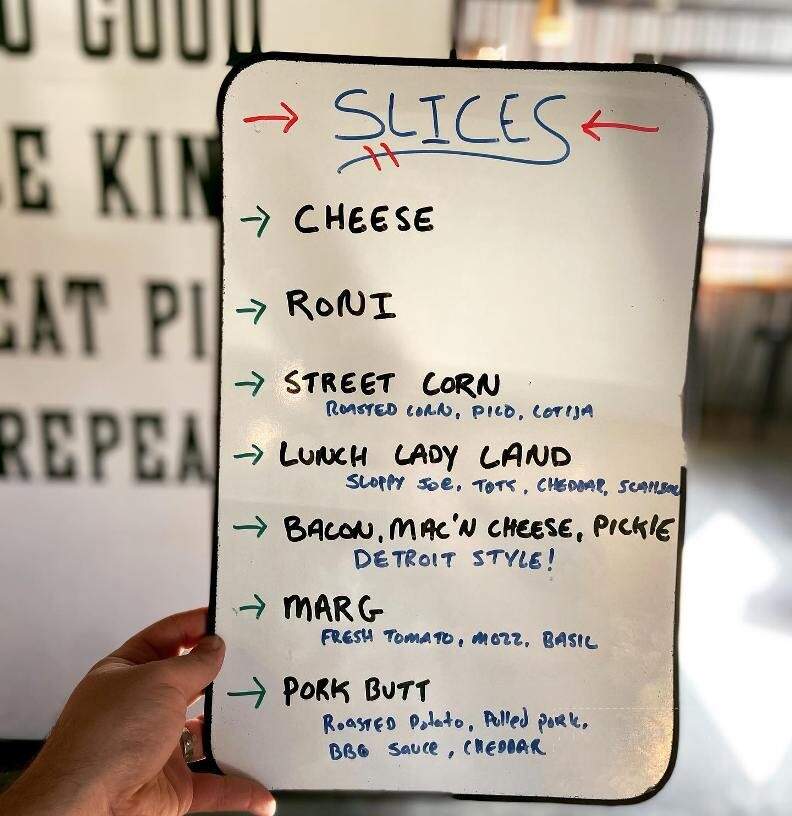 GOOD
E KIN
EAT PI
REPEA
→ SLICES ←
→ CHEESE
→ RONI
→ STREET CORN
ROASTED CORN, PICO, COTIJA
→ LUNCH LADY LAND
SLOPPY JOE, TOTS, CHEDDAR,
→ BACON, MAC'N CHEESE, PICKLE
DETROIT STYLE!
→ MARG
FRESH TOMATO, MOZZ, BASIL
→ PORK BUTT
ROASTED Potato, Pulled pork,
BBQ SAUCE, CHEDDAR